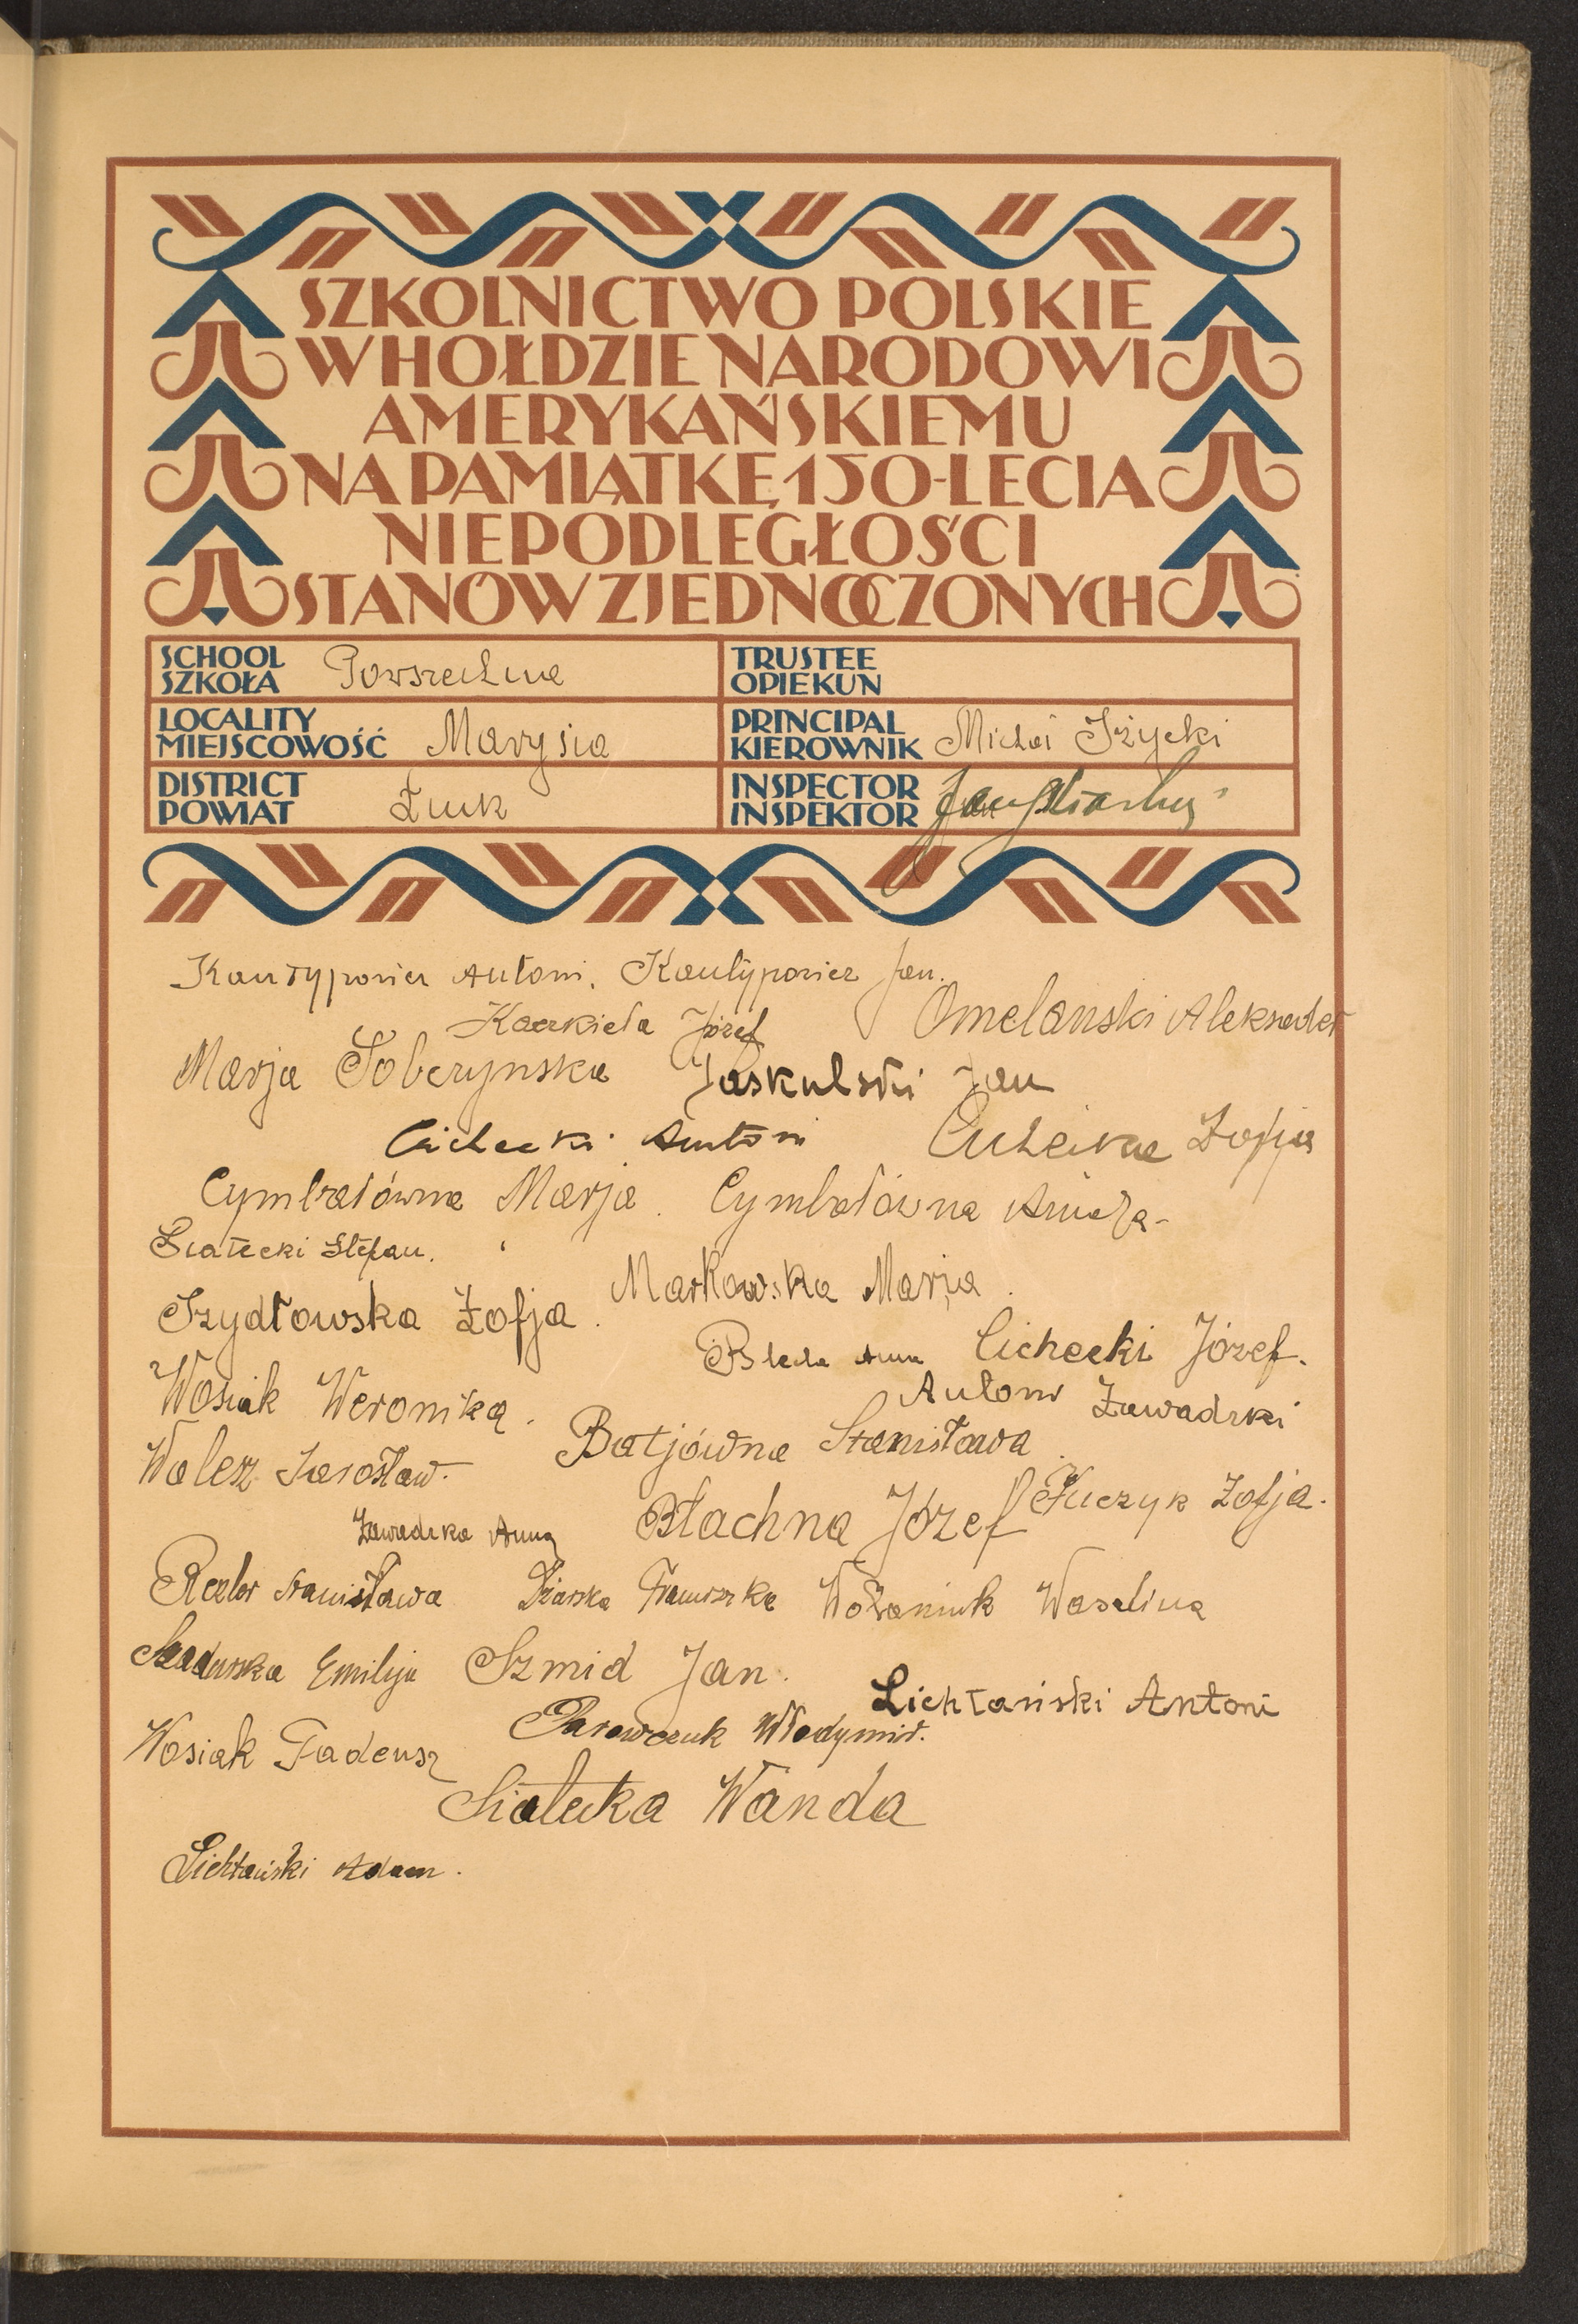 SZKOLNICTWO POLSKIE
W HOŁDZIE NARODOWI
AMERYKAŃSKIEMU
NA PAMIĄTKĘ 150-LECIA
NIEPODLEGŁOŚCI
STANÓW ZJEDNOCZONYCH
SCHOOL
SZKOŁA Powszechna
TRUSTEE
OPIEKUN
LOCALITY
MIEJSCOWOŚĆ Marysia
PRINCIPAL
KIEROWNIK Michał Iżycki
DISTRICT
POWIAT Łuck
INSPECTOR
INSPEKTOR Jan
Antoni. Jan.
Józef Omelanski Aleksander
Marja Soberynska Jaskulski Jan
Cichecki Antoni Cichecka Zofja
Cymbałówna Marja. Cymbałówna
Siatecki Stefan.
Markowska Marja.
Szydłowska Zofja.
Anna Cichecki Józef.
Wosiak Weronika. Antoni Zawadzki
Batjówna Stanisława
Walesz Jarosław.
Błachna Józef Kuczyk Zofja.
Zawadzka Anna
Stanisława Wołaniuk Waselina
Emilija Szmid Jan.
Lichtański Antoni
Wosiak Tadeusz Parowczuk Włodymir.
Siatecka Wanda
Lichtański Adam.